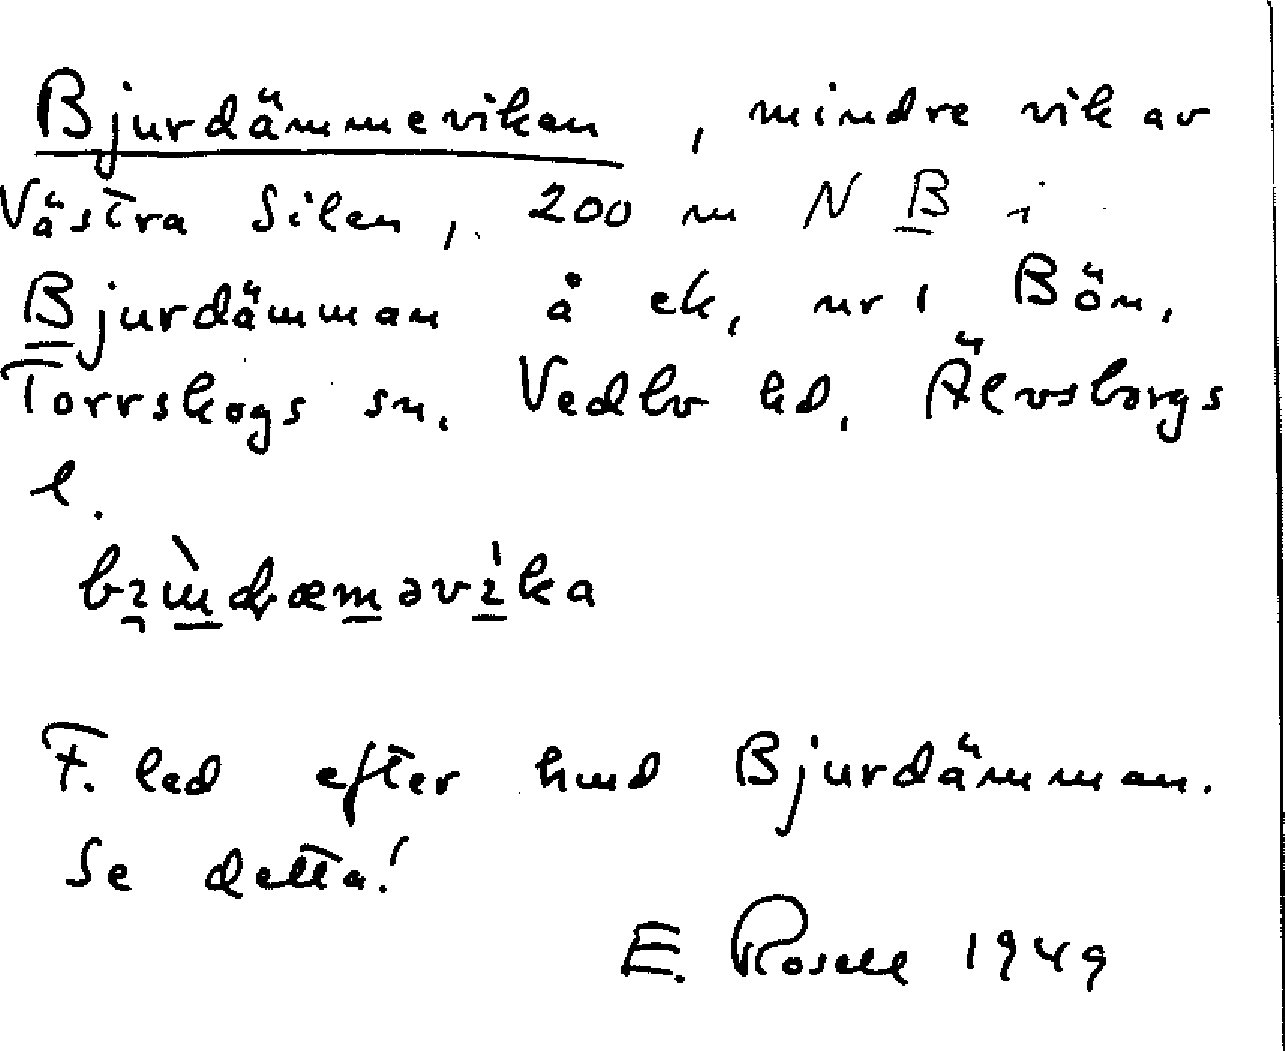 Bjurdämmeviken, mindre vik av
Västra Silen, 200 m N B i
Bjurdämman å ek, nr 1 Bön,
Torrskogs sn. Vedbo hd, Älvsborgs
l.
F. led efter hmd Bjurdämman.
Se detta!
E. Rosell 1949